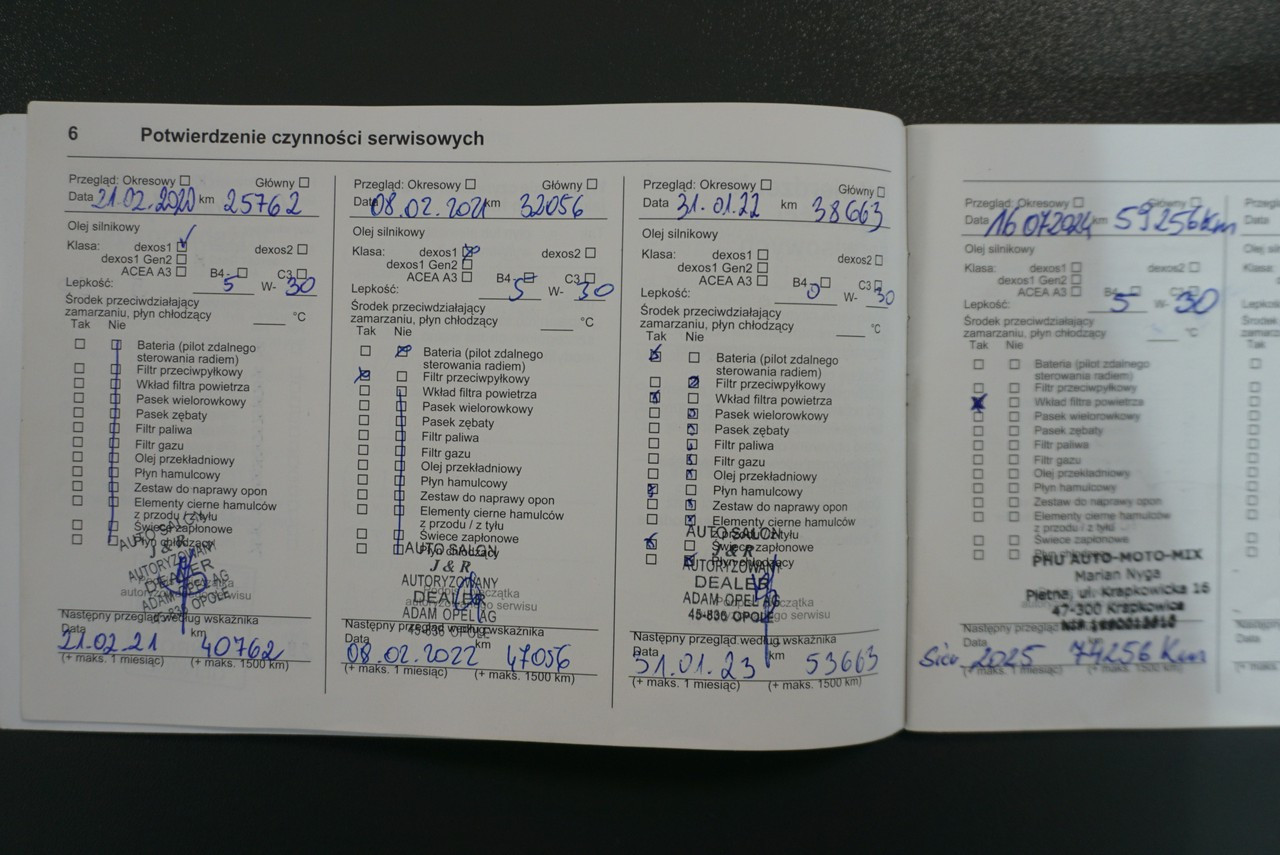 6 Potwierdzenie czynności serwisowych
Przegląd: Okresowy Główny
Data 21.02.2020 km 25762
Olej silnikowy
Klasa: dexos1 dexos2
dexos1 Gen2
ACEA A3 B4 C3
Lepkość: 5 W- 30
Środek przeciwdziałający
zamarzaniu, płyn chłodzący °C
Tak Nie
Bateria (pilot zdalnego
sterowania radiem)
Filtr przeciwpyłkowy
Wkład filtra powietrza
Pasek wielorowkowy
Pasek zębaty
Filtr paliwa
Filtr gazu
Olej przekładniowy
Płyn hamulcowy
Zestaw do naprawy opon
Elementy cierne hamulców
z przodu / z tyłu
Świece zapłonowe
Płyn chłodzący
AUTO SALON
J & R
AUTORYZOWANY
DEALER
ADAM OPEL AG
45-836 OPOLE
Następny przegląd według wskaźnika
Data km
21.02.21 40762
(+ maks. 1 miesiąc) (+ maks. 1500 km)
Przegląd: Okresowy Główny
Data 08.02.2021 km 32056
Olej silnikowy
Klasa: dexos1 dexos2
dexos1 Gen2
ACEA A3 B4 C3
Lepkość: 5 W- 30
Środek przeciwdziałający
zamarzaniu, płyn chłodzący °C
Tak Nie
Bateria (pilot zdalnego
sterowania radiem)
Filtr przeciwpyłkowy
Wkład filtra powietrza
Pasek wielorowkowy
Pasek zębaty
Filtr paliwa
Filtr gazu
Olej przekładniowy
Płyn hamulcowy
Zestaw do naprawy opon
Elementy cierne hamulców
z przodu / z tyłu
Świece zapłonowe
Płyn chłodzący
AUTO SALON
J & R
AUTORYZOWANY
DEALER
ADAM OPEL AG
45-836 OPOLE
Następny przegląd według wskaźnika
Data km
08.02.2022 47056
(+ maks. 1 miesiąc) (+ maks. 1500 km)
Przegląd: Okresowy Główny
Data 31.01.22 km 38663
Olej silnikowy
Klasa: dexos1 dexos2
dexos1 Gen2
ACEA A3 B4 C3
Lepkość: 0 W- 30
Środek przeciwdziałający
zamarzaniu, płyn chłodzący °C
Tak Nie
Bateria (pilot zdalnego
sterowania radiem)
Filtr przeciwpyłkowy
Wkład filtra powietrza
Pasek wielorowkowy
Pasek zębaty
Filtr paliwa
Filtr gazu
Olej przekładniowy
Płyn hamulcowy
Zestaw do naprawy opon
Elementy cierne hamulców
z przodu / z tyłu
Świece zapłonowe
Płyn chłodzący
AUTO SALON
J & R
AUTORYZOWANY
DEALER
ADAM OPEL AG
45-836 OPOLE
Następny przegląd według wskaźnika
Data km
31.01.23 53663
(+ maks. 1 miesiąc) (+ maks. 1500 km)
Przegląd: Okresowy Główny
Data 16 07 2024 km 59256 Km
Olej silnikowy
Klasa: dexos1 dexos2
dexos1 Gen2
ACEA A3 B4 C3
Lepkość: 5 W- 30
Środek przeciwdziałający
zamarzaniu, płyn chłodzący °C
Tak Nie
Bateria (pilot zdalnego
sterowania radiem)
Filtr przeciwpyłkowy
Wkład filtra powietrza
Pasek wielorowkowy
Pasek zębaty
Filtr paliwa
Filtr gazu
Olej przekładniowy
Płyn hamulcowy
Zestaw do naprawy opon
Elementy cierne hamulców
z przodu / z tyłu
Świece zapłonowe
PHU AUTO-MOTO-MIX
Marian Nyga
Pietna, ul. Krapkowicka 16
47-300 Krapkowice
Następny przegląd
2025 74256 Km
(+ maks. 1 miesiąc) (+ maks. 1500 km)